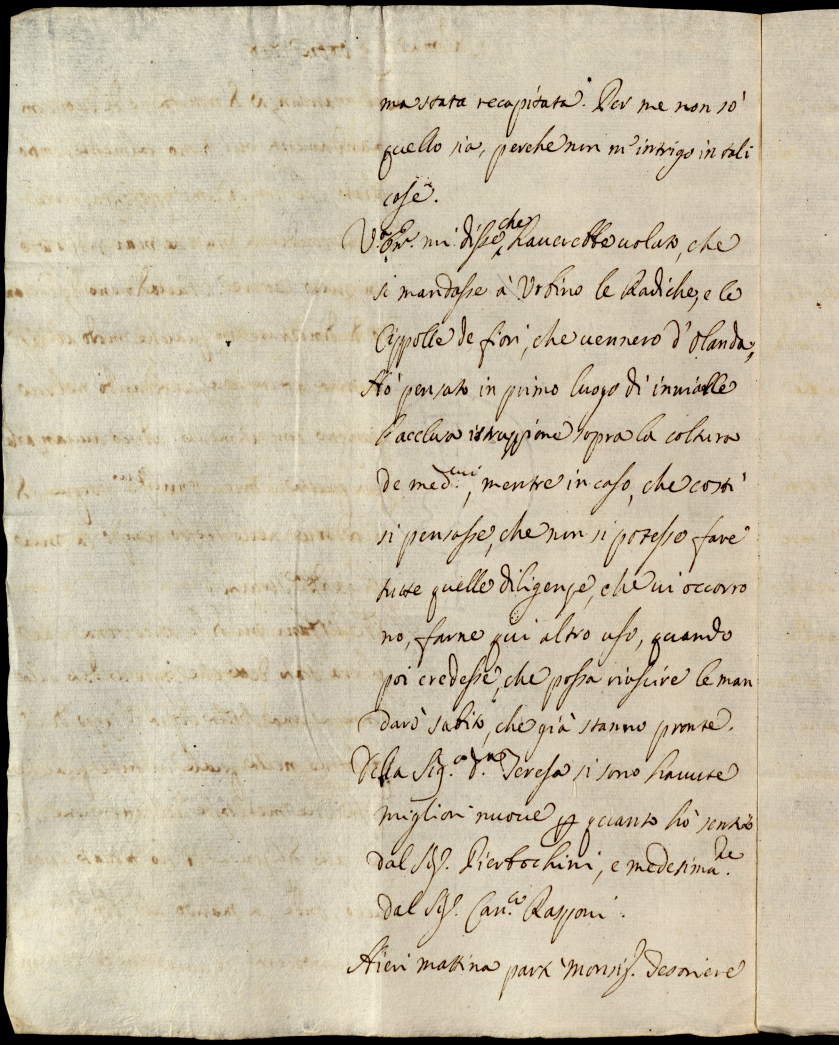 ma stata recapitata. Per me non sò
quello sia, perche non m'intrigo in tali
cose.
V. Em. mi disse, che haverebbe uoluto, che
si mandasse à Urbino le Radiche, e le
Cippolle de fiori, che uennero d'Olanda,
Hò pensato in primo luogo di inuiarle
l'acclusa istruzzione sopra la coltura
de med.mi, mentre in caso, che costì
si pensasse, che non si potesse fare
tutte quelle diligenze, che ui occorro
no, farne qui altro uso, quando
poi credesse, che possa riuscire le man
darò subito, che già stanno pronte.
Della Sig.a D.na Teresa si sono hauute
migliori nuoue p quanto hò sentito
dal Sig.r Pierbechini, e medesima.te
dal Sig.r Can.co Rasponi.
Hieri mattina partì Monsig.r